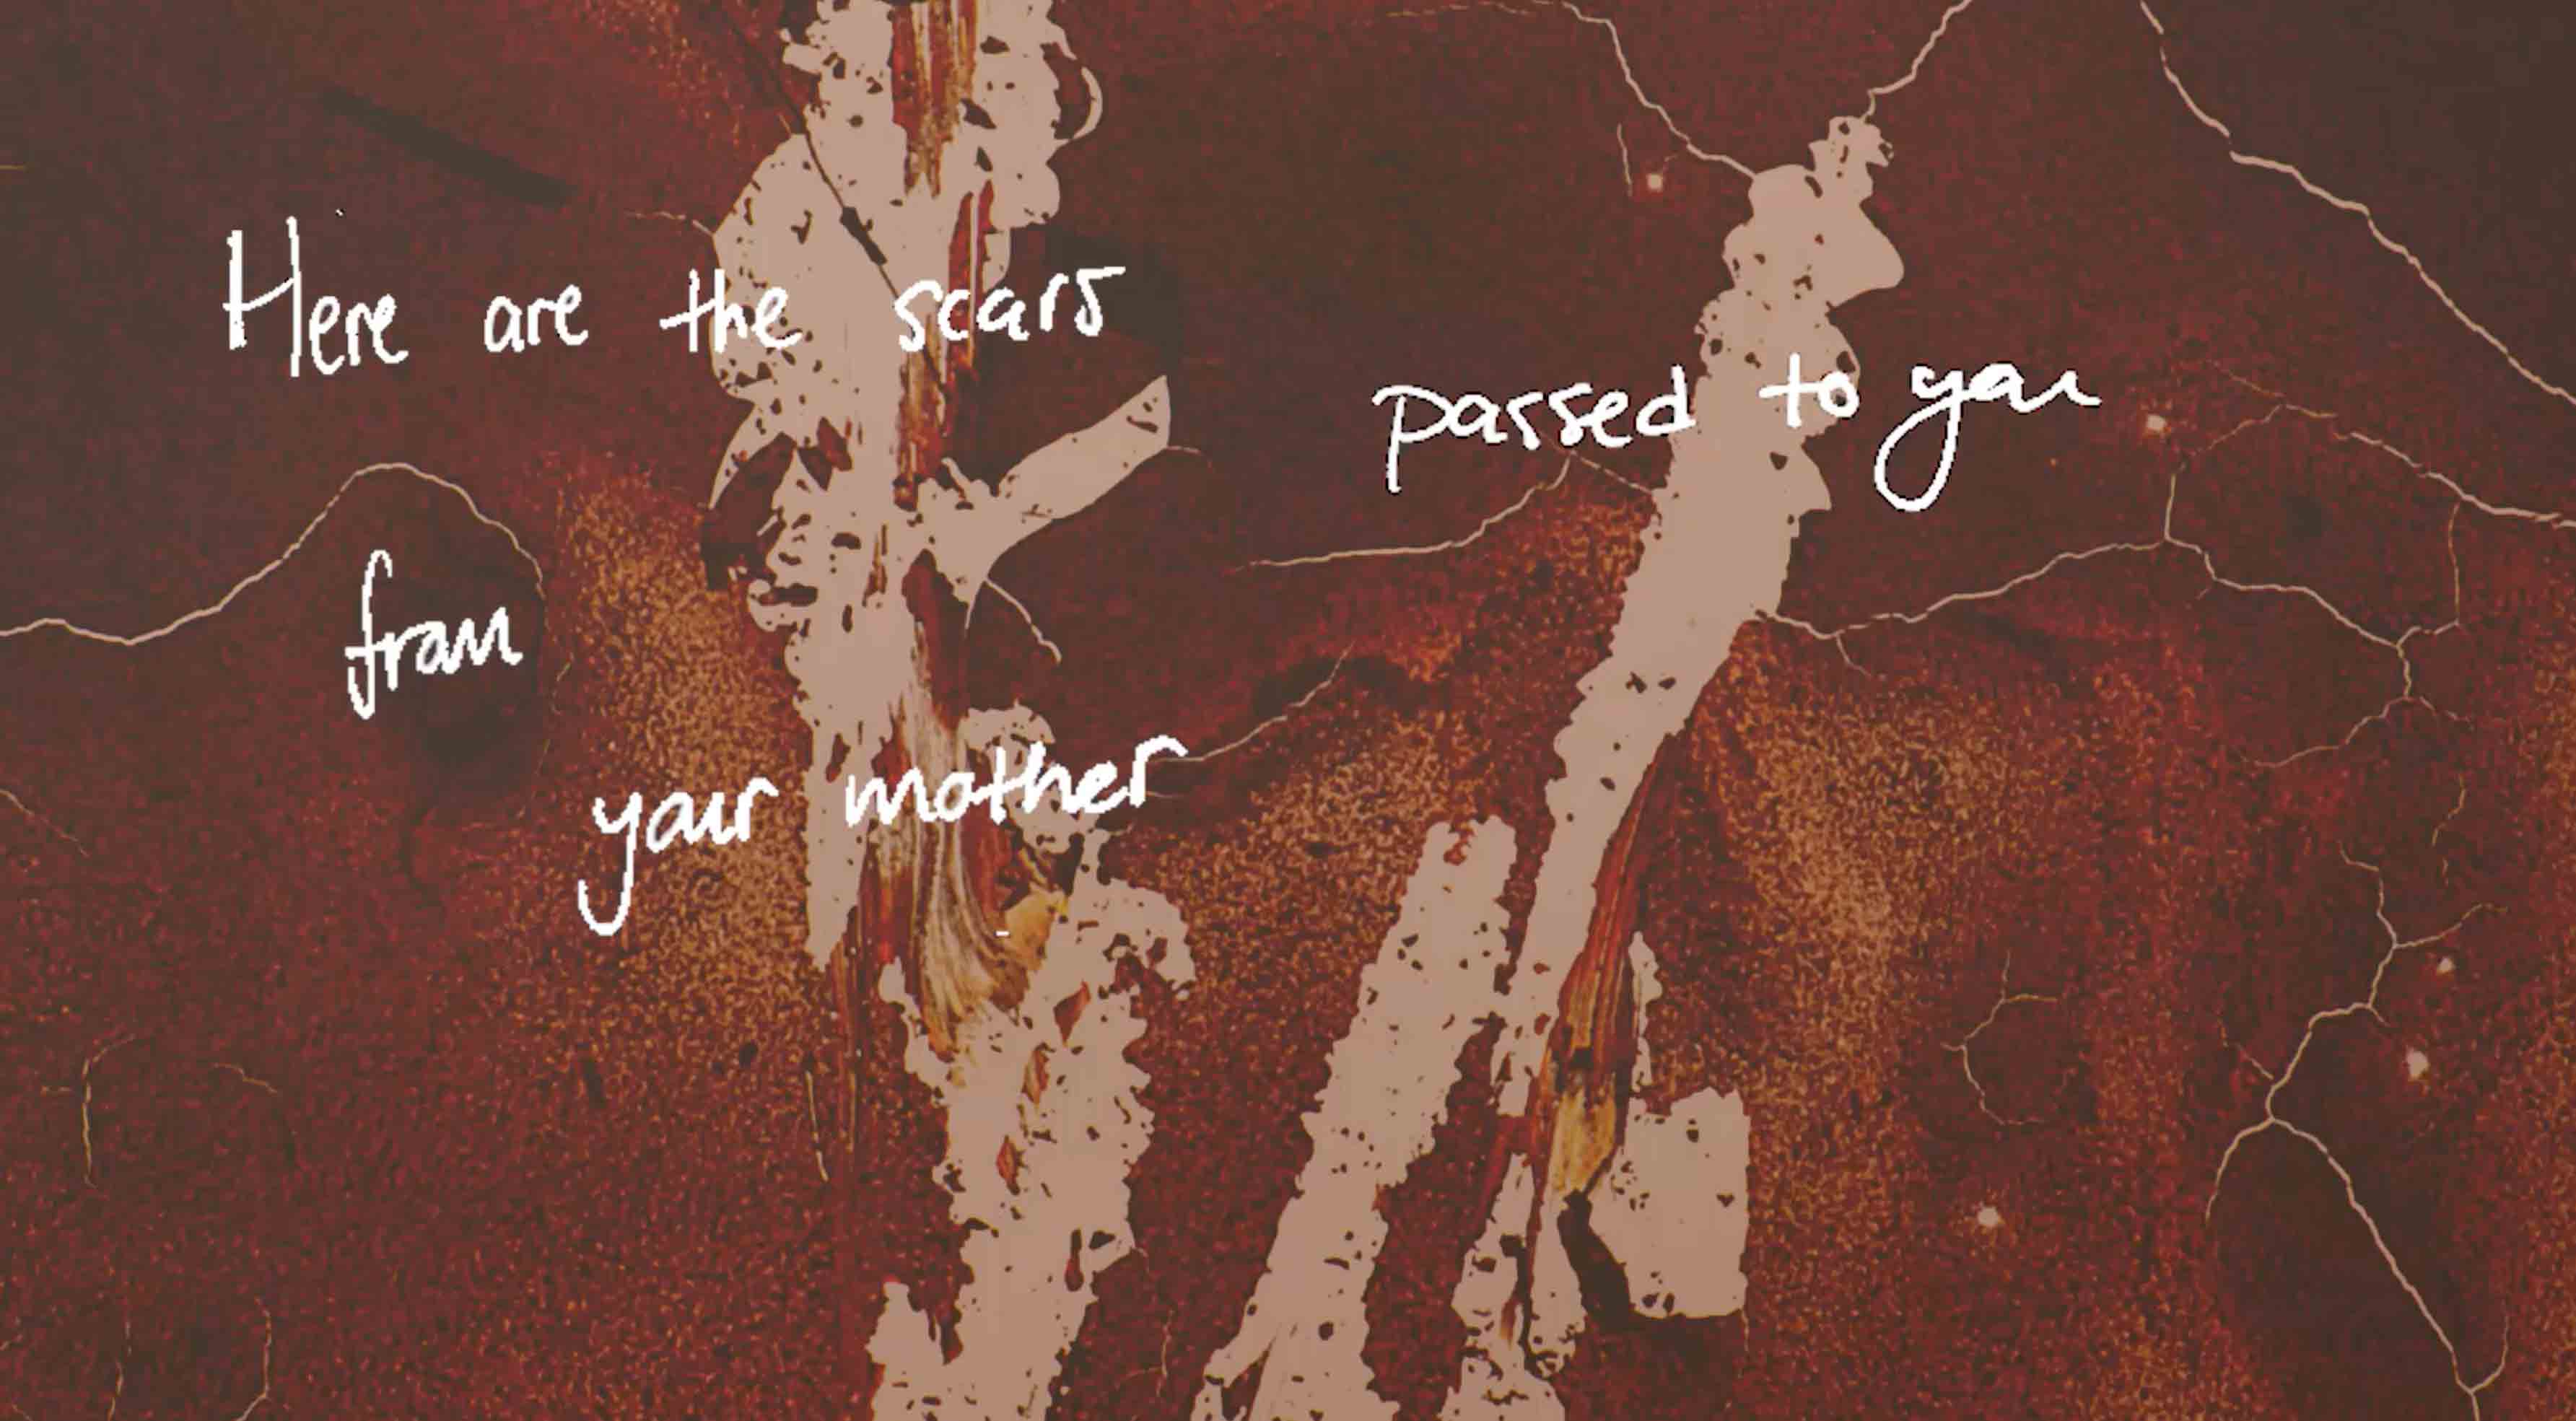 Here are the scars
passed to you
from
your mother